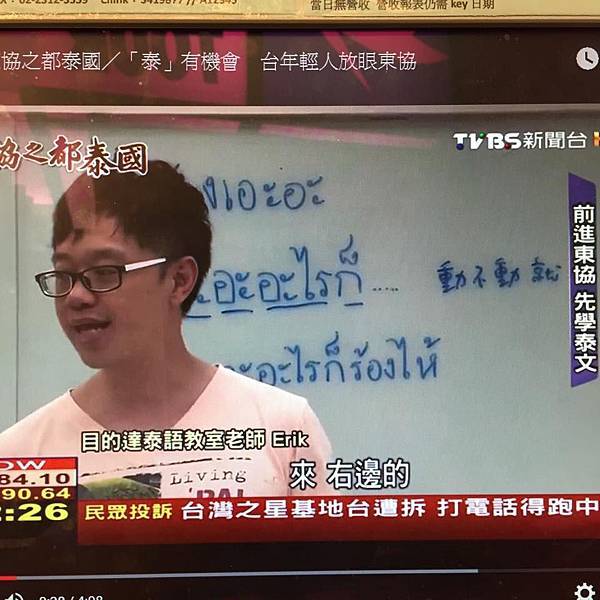 當日無營收 營收報表仍需 key 日期
協之都泰國／「泰」有機會 台年輕人放眼東協
協之都泰國
TVBS 新聞台
งเอะอะ
ะอะอะไรก็..... 動不動 就
ะอะไรก็ร้องไห้
前進東協 先學泰文
目的達泰語教室老師 Erik
Living
來 右邊的
84.10
90.64
:26
民眾投訴 台灣之星基地台遭拆 打電話得跑中